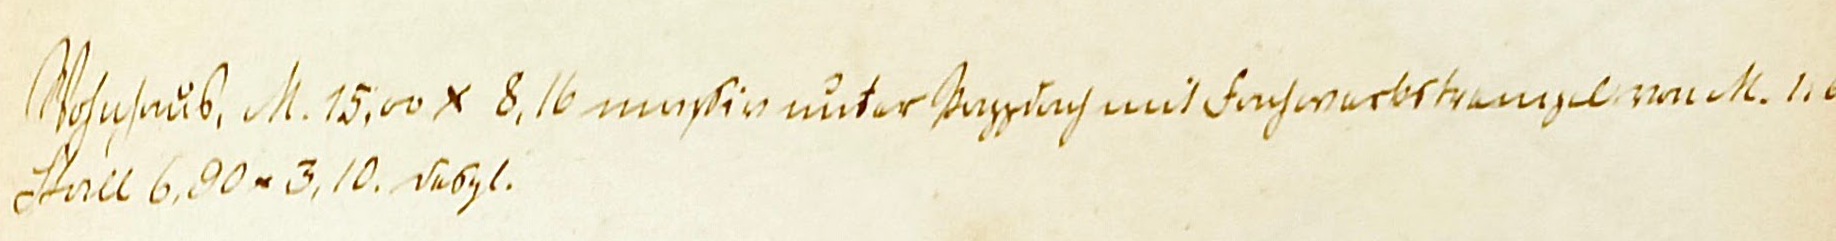 Wohnhaus, M. 15,00 x 8,16 massiv unter Pappdach mit Fachwerksdrempel von M. 1,0
Stall 6,90 x 3,10. desgl.